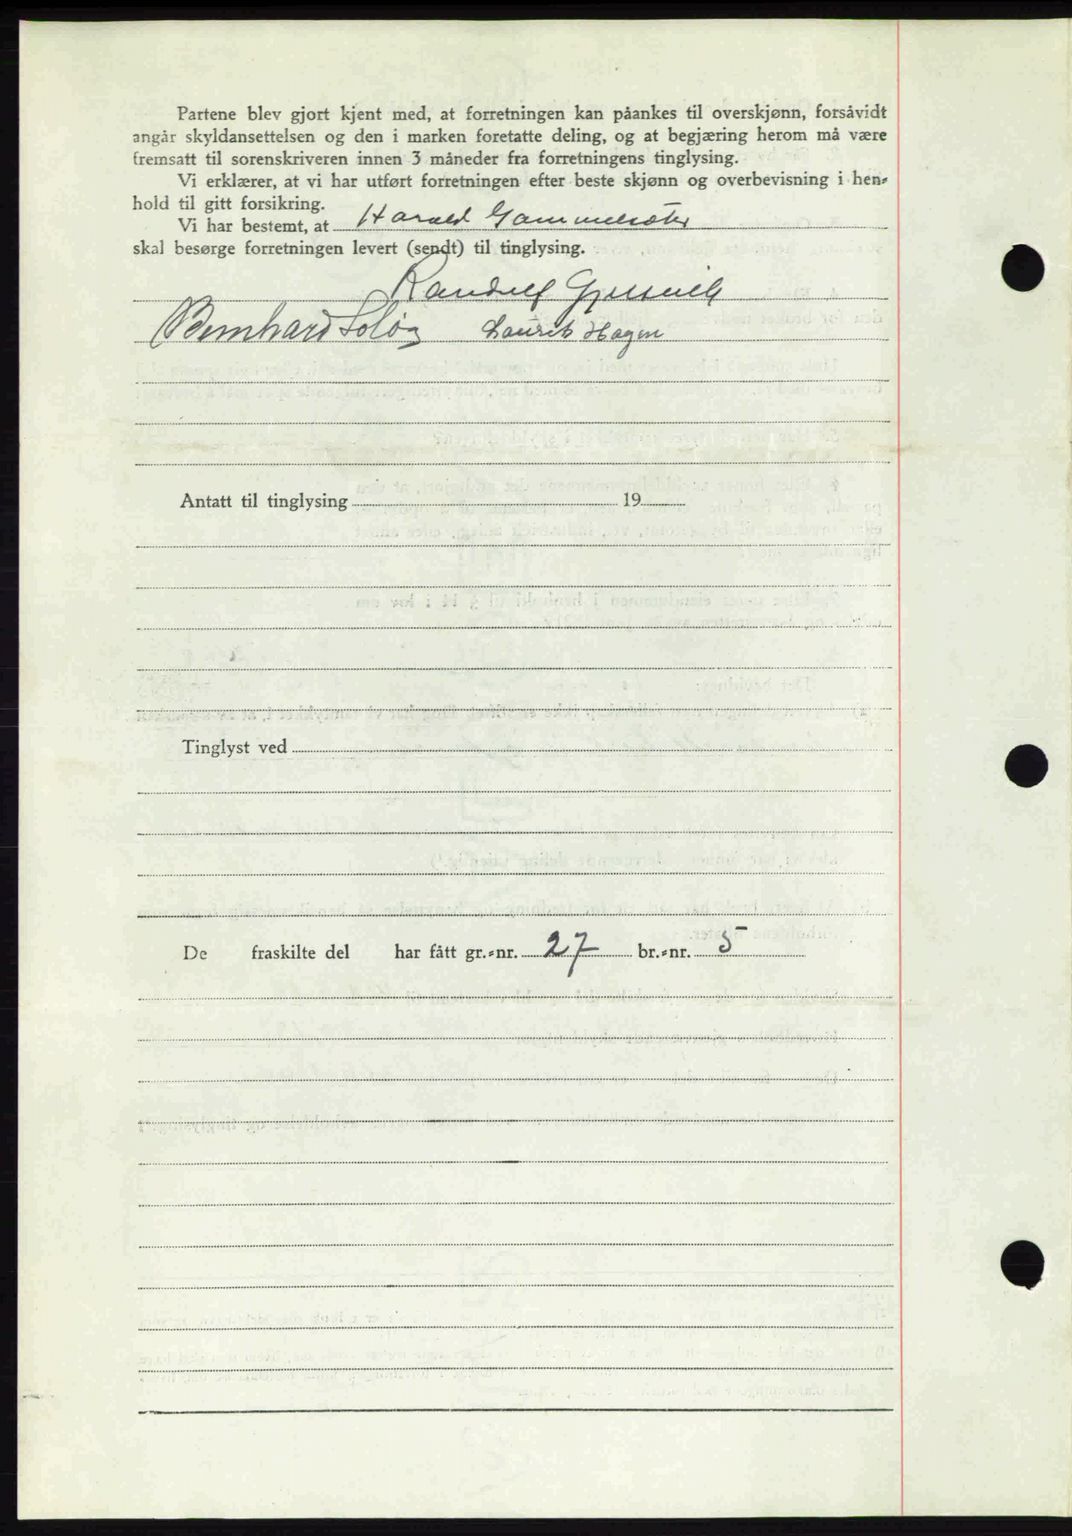 Partene blev gjort kjent med, at forretningen kan påankes til overskjønn, forsåvidt
angår skyldansettelsen og den i marken foretatte deling, og at begjæring herom må være
fremsatt til sorenskriveren innen 3 måneder fra forretningens tinglysing.
Vi erklærer, at vi har utført forretningen efter beste skjønn og overbevisning i hen-
hold til gitt forsikring.
Vi har bestemt, at Harald Gammelsæter
skal besørge forretningen levert (sendt) til tinglysing.
Randulf
Bernhard Soløy Laurits Hagen
Antatt til tinglysing 19
Tinglyst ved
De fraskilte del har fått gr.-nr. 27 br.-nr. 5